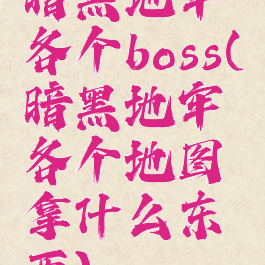 暗黑地牢
各个boss(
暗黑地牢
各个地图
拿什么东
西)